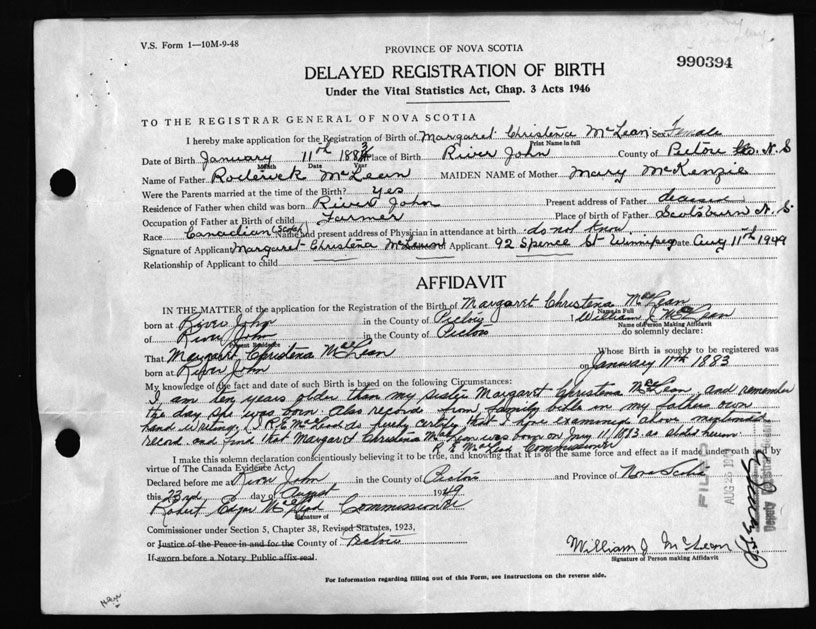 V.S. Form 1—10M-9-48
PROVINCE OF NOVA SCOTIA
990394
DELAYED REGISTRATION OF BIRTH
Under the Vital Statistics Act, Chap. 3 Acts 1946
TO THE REGISTRAR GENERAL OF NOVA SCOTIA
I hereby make application for the Registration of Birth of Margaret Christena McLean Sex Female
Print Name in full
Date of Birth January 11th 1883 Place of Birth River John County of Pictou Co. N.S
Month Year
Name of Father Roderick McLean MAIDEN NAME of Mother Mary McKenzie
Were the Parents married at the time of the Birth? yes
Residence of Father when child was born River John Present address of Father deceased
Occupation of Father at Birth of child Farmer Place of birth of Father Scotsburn N.S
Race Canadian (Scotch) Name and present address of Physician in attendance at birth do not know
Signature of Applicant Margaret Christena McLean Address 92 Spence St Winnipeg Date Aug 11th 1949
Relationship of Applicant to child
AFFIDAVIT
IN THE MATTER of the application for the Registration of the Birth of Margaret Christena MacLean
Name in Full
born at River John in the County of Pictou I William J. MacLean
Name of Person Making Affidavit
of River John in the County of Pictou do solemnly declare:
Present Residence
That Margaret Christena MacLean Whose Birth is sought to be registered was
born at River John on January 11th 1883
My knowledge of the fact and date of such Birth is based on the following Circumstances:
I am ten years older than my sister Margaret Christena McLean, and remember
the day she was born. Also records from family bible in my fathers own
hand writing. I, R.E. MacLeod do hereby certify that I have examined above mentioned
record and find that Margaret Christena MacLean was born on Jany 11/1883 as stated herein
R. E. MacLeod Commissioner
I make this solemn declaration conscientiously believing it to be true, and knowing that it is of the same force and effect as if made under oath by
virtue of The Canada Evidence Act.
Declared before me at River John in the County of Pictou and Province of Nova Scotia
this 23rd day of August 1949
Robert Edgar McLeod Commissioner
Signature of
Commissioner under Section 5, Chapter 38, Revised Statutes, 1923,
or Justice of the Peace in and for the County of Pictou
If sworn before a Notary Public affix seal.
William J McLean
Signature of Person making Affidavit
FILED
AUG 26
Deputy Registrar General
For Information regarding filling out of this Form, see Instructions on the reverse side.